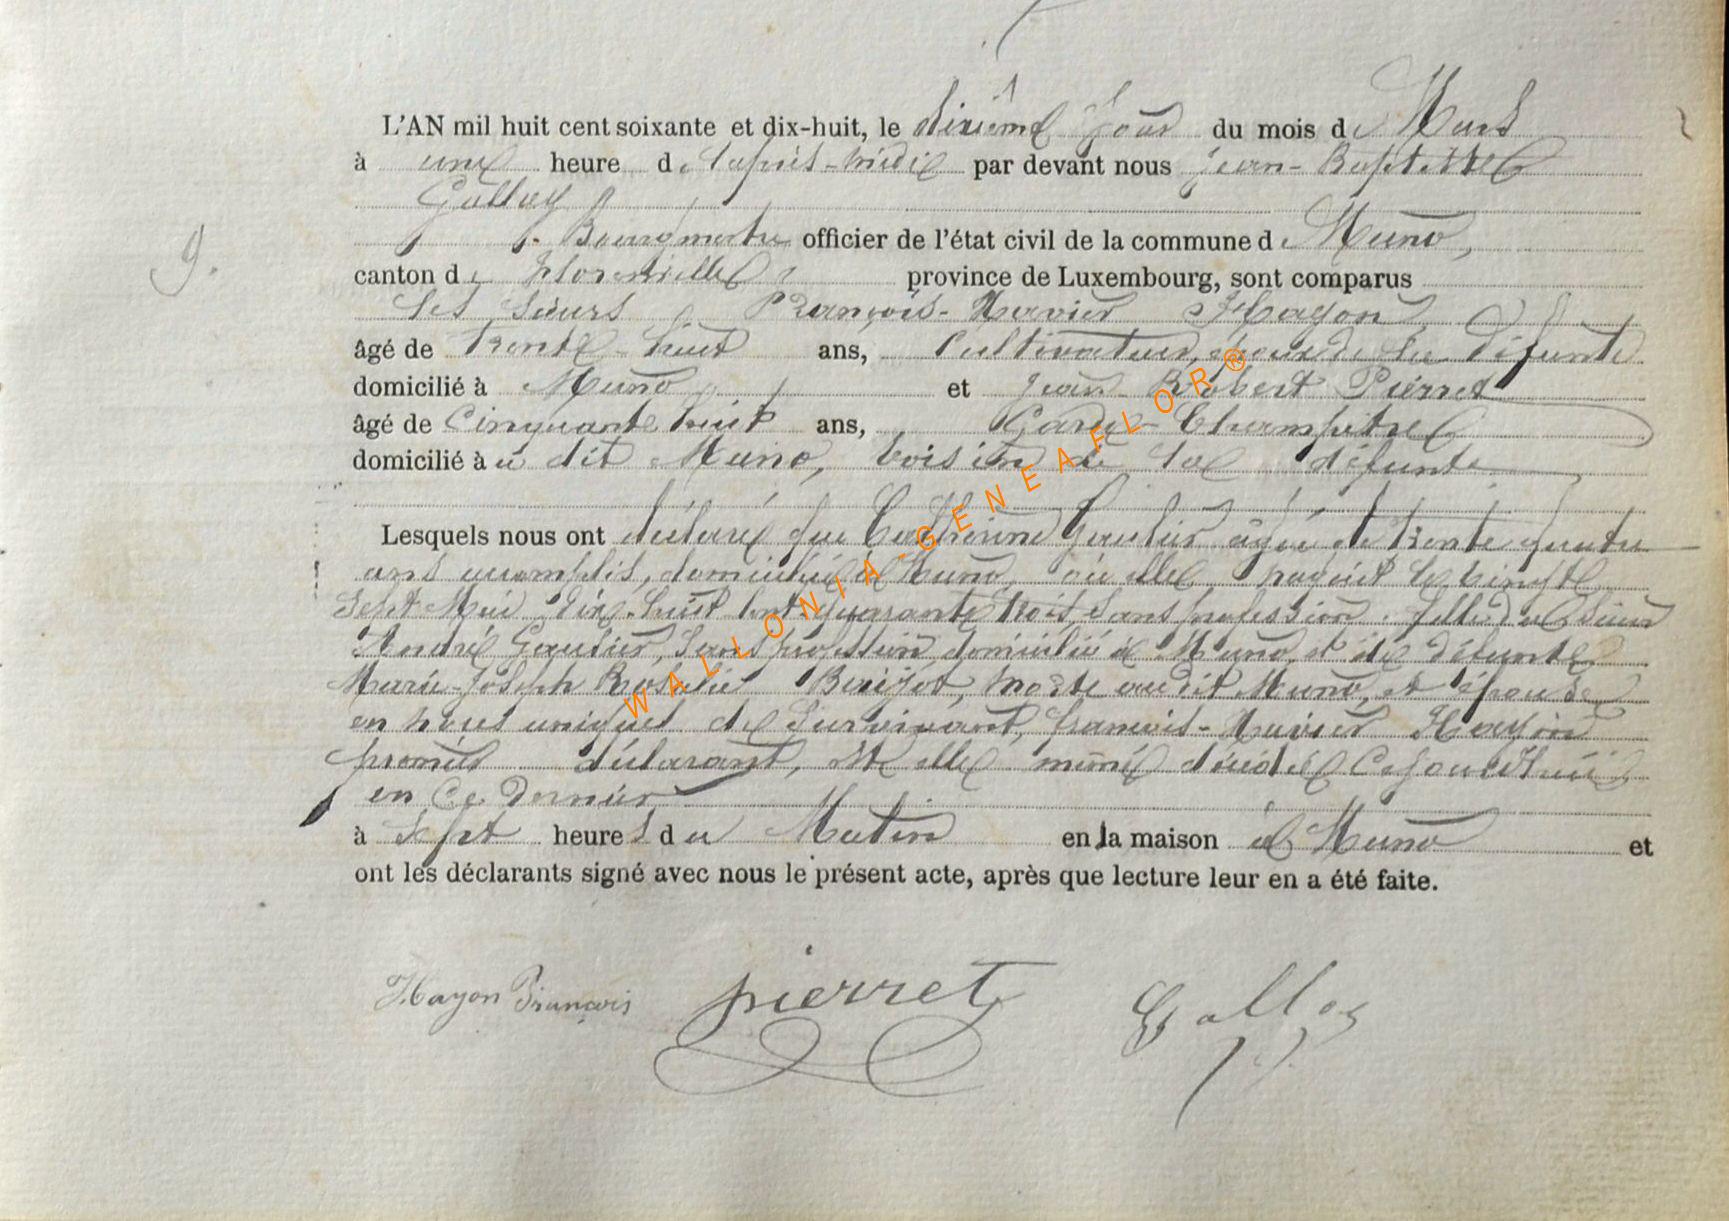 L'AN mil huit cent soixante et dix-huit, le dixième jour du mois de Mars
à une heure de l'après-midi par devant nous Jean-Baptiste
Galloy
Bourgmestre officier de l'état civil de la commune de Muno,
canton de Florenville, province de Luxembourg, sont comparus
les sieurs François-Xavier Hayon,
âgé de trente-huit ans, Cultivateur, époux de la défunte
domicilié à Muno, et Jean Robert Pierret
âgé de Cinquante huit ans, Garde-Champêtre
domicilié à u dit Muno, voisin de la défunte
Lesquels nous ont déclaré que Catherine Gautier âgée de trente quatre
ans accomplis, domiciliée à Muno, où elle naquit le vingt
sept Mai dix-huit cent quarante trois, sans profession, fille du sieur
André Gautier, sans profession, domicilié à Muno, et de défunte
Marie-Joseph Rosalie, morte au dit Muno, et épouse
en noces uniques du survivant, François-Xavier Hayon
premier déclarant, est elle même décédée Cejourd'hui
en ce dernier
à sept heures du Matin en la maison à Muno et
ont les déclarants signé avec nous le présent acte, après que lecture leur en a été faite.
9.
Hayon François pierret Galloy
WALLONIA-GENEAFLOR®